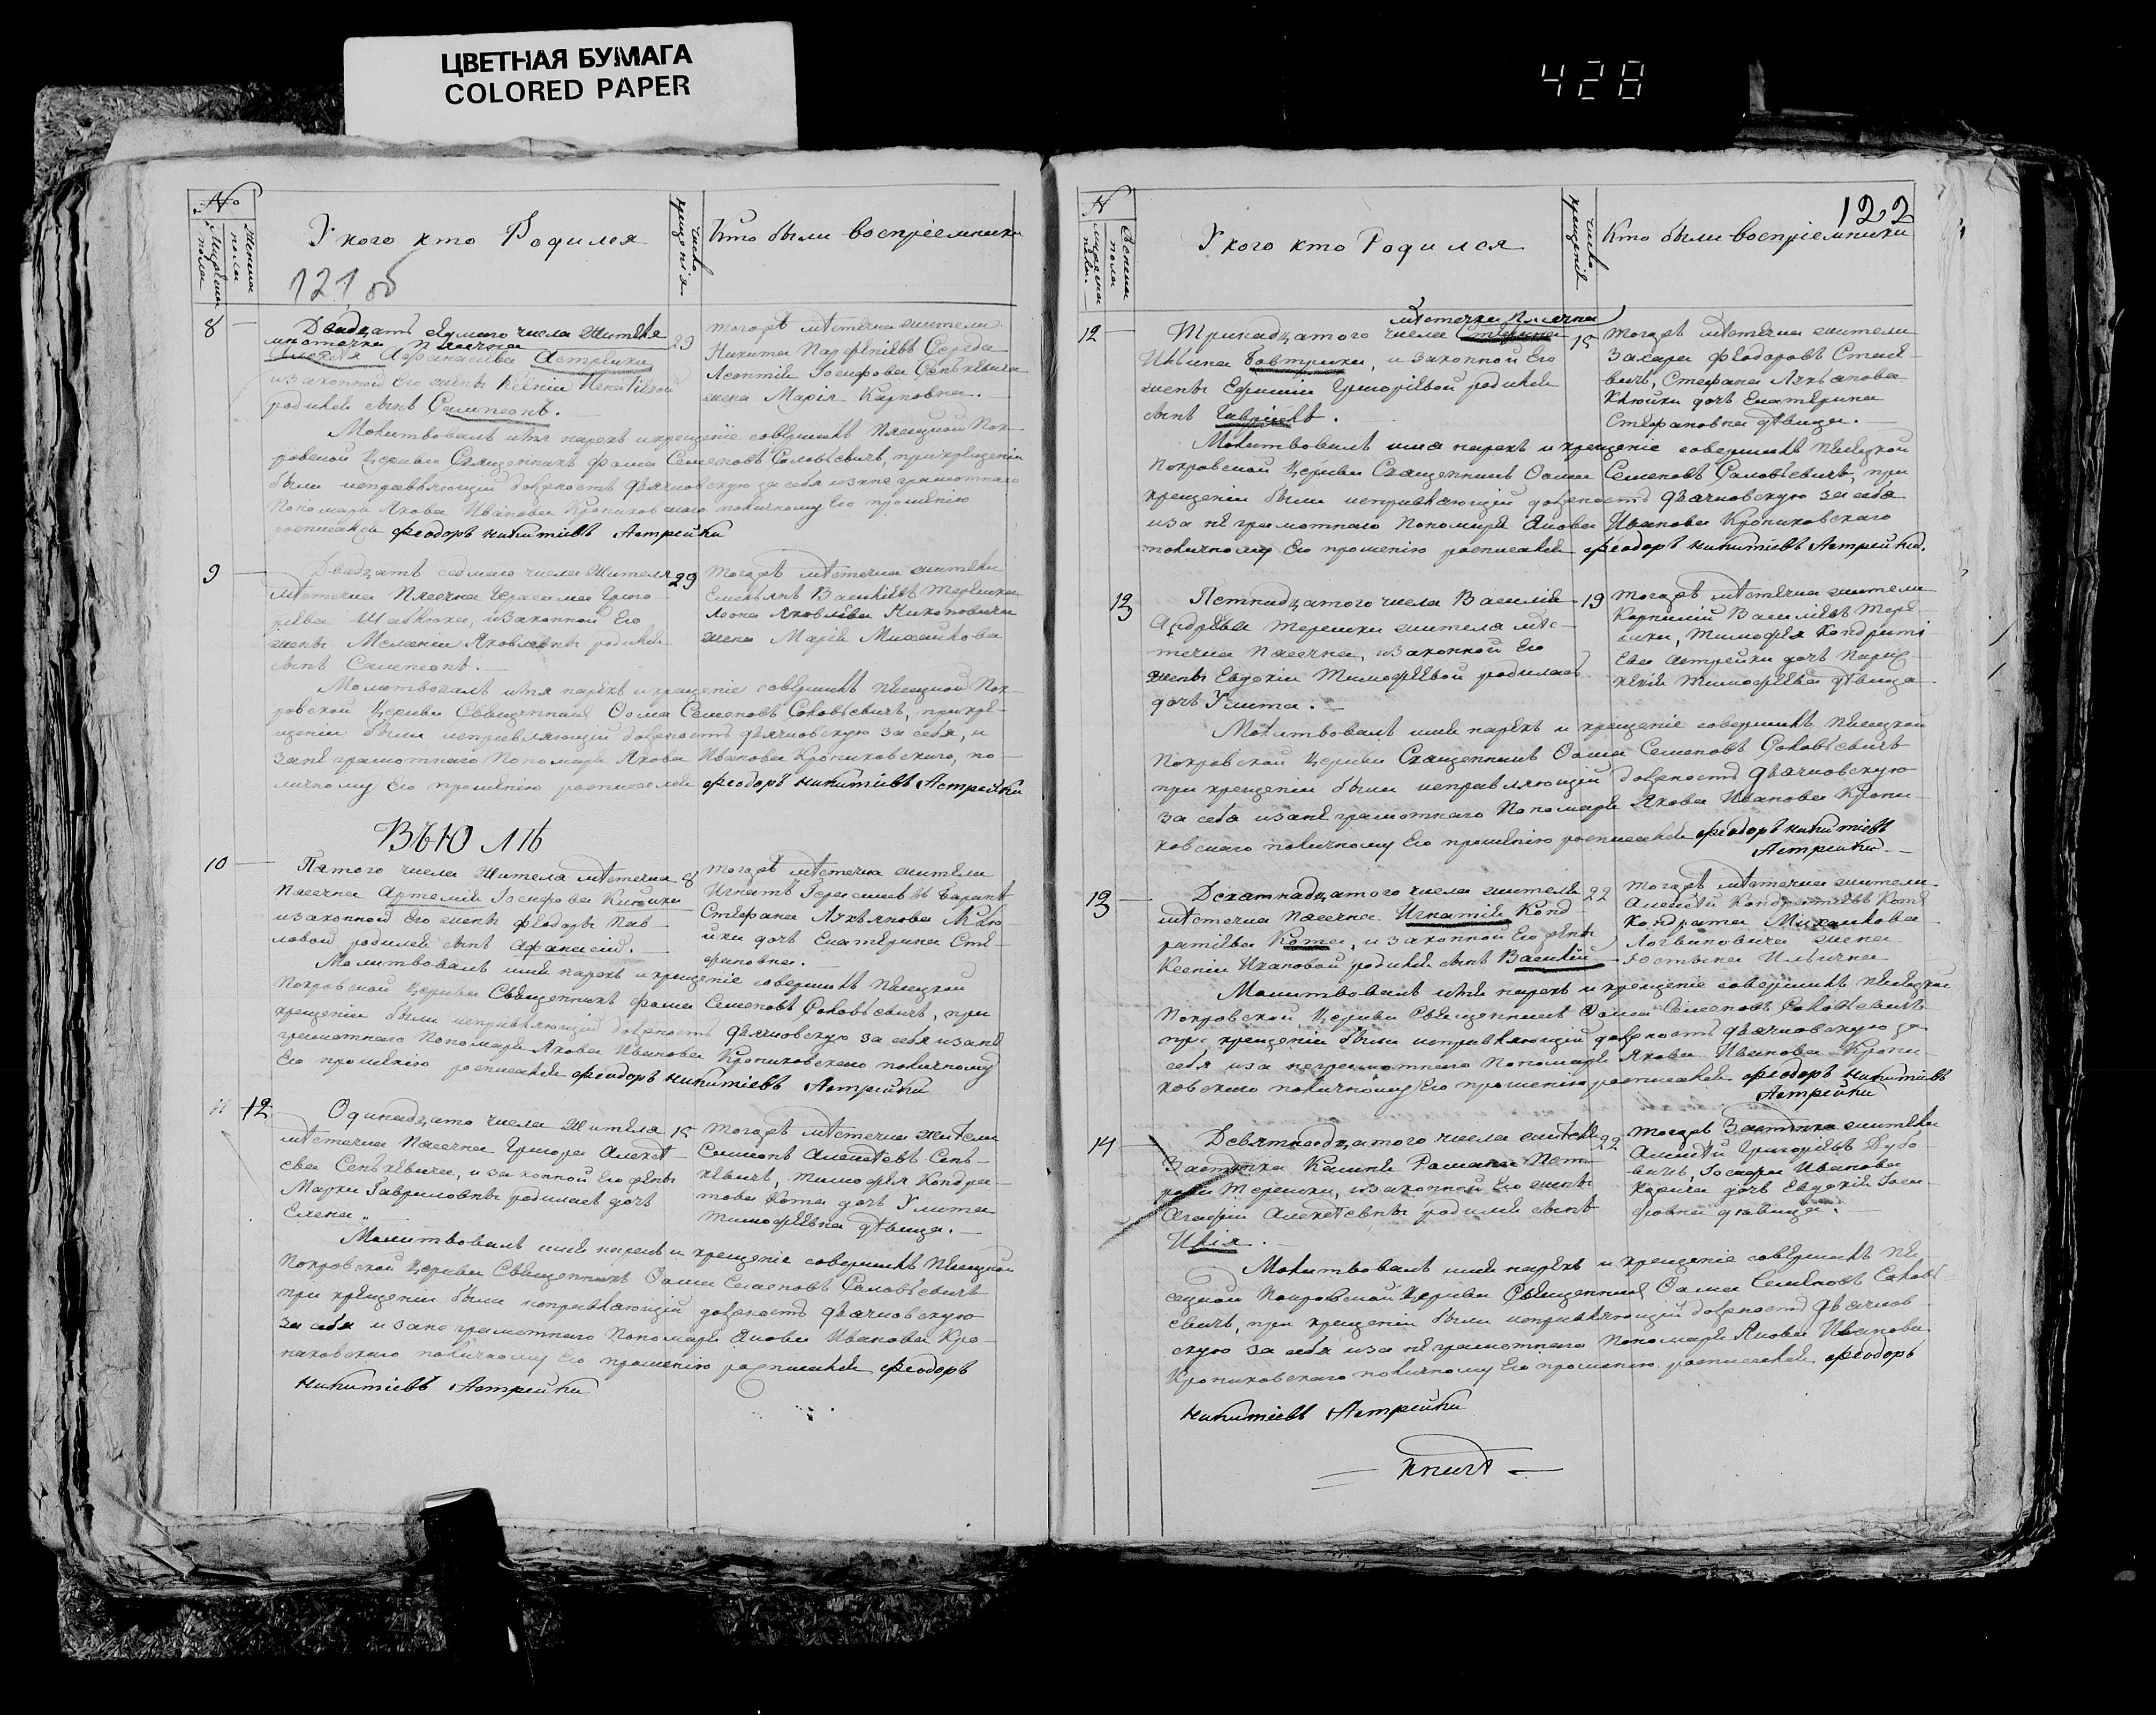 ЦВЕТНАЯ БУМАГА
COLORED PAPER
428
№
Мужеска пола
Женска пола
У кого кто Родился
число крещенія
Кто были воспріемники
121 об
8
Двадцать седмаго числа жителя
местечка Пясечна
Алексѣя Афанасіева Астрейки
изаконной Его жены Ксеніи Игнатіевой
родился сынъ Сампсонъ.
29
тогожъ мѣстечка жители
Никита Парфеніевъ Середа
Леонтія Іосифова Сенкевича
жена Марія Карповна.
Молитвовалъ имя нарекъ и крещеніе совершилъ Пясецкой Пок-
ровской Церкви Священникъ Фома Семеновъ Соловьевичъ, прикрещеніи
были исправляющій должность дьячковскую за себя изане грамотнаго
Пономаря Якова Иванова Кропиковскаго поличному Его прошенію
росписался Феодоръ Никитіевъ Астрейки
9
Двадцать седмаго числа Жителя
Мѣстечка Пясечна Герасима Григо-
ріева, изаконной Его
жены Меланіи Яковлевны родился
сынъ Сампсонъ.
29
тогожъ мѣстечка жители
Емельянъ Василіевъ Терешка
Леона Яковлева
жена Марія Михайлова
Молитвовалъ имя нарекъ икрещеніе совершилъ Пясецкой Пок-
ровской Церкви Священникъ Фома Семеновъ Соловьевичъ, прикре-
щеніи были исправляющій должность дьячковскую за себя, и
зане грамотнаго Пономаря Якова Иванова Кропиковскаго, по-
личному Его прошенію росписался Феодоръ Никитіевъ Астрейки
ВЪ ЮЛѢ
10
Пятаго числа Жителя мѣстечка
Пясечна Артемія Іосифова Клюйки
изаконной Его жены Феодоры Пав-
ловой родился сынъ Афанасій.
8
тогожъ мѣстечка жители
Игнатъ Герасимовъ
Стефана Лукьянова Клю-
йки дочь Екатерина Сте-
фановна.
Молитвовалъ имя нарекъ и крещеніе совершилъ Пясецкой
Покровской Церкви Священникъ Фома Семеновъ Соловьевичъ, при
крещеніи были исправляющій должность дьячковскую за себя изане
грамотнаго Пономаря Якова Иванова Кропиковскаго поличному
Его прошенію росписался Феодоръ Никитіевъ Астрейки
11 12
Одинадцато числа Жителя
мѣстечка Пясечна Григорія Алексѣ-
ева Сенкевича, и законной Его жены
Марѳи Гавриловны родилась дочь
Елена
15
тогожъ мѣстечка жители
Симеонъ Алексѣевъ Сень-
кевичъ, Тимофея Кондра-
това Кота дочь Улита
Тимофѣевна дѣвица.
Молитвовалъ имя нарекъ и крещеніе совершилъ Пясецкой
Покровской Церкви Священникъ Фома Семеновъ Соловьевичъ
при крещеніи были исправляющій должность дьячковскую
за себя и зане грамотнаго Пономаря Якова Иванова Кро-
пиковскаго поличному Его прошенію росписался Феодоръ
Никитіевъ Астрейки
№
мужеска пола
женска пола
У кого кто Родился
число крещенія
Кто были воспріемники
122
12
мѣстечка Пясечна
Тринадцатого числа
Ильина Бовтрика, и законной Его
жены Ефиміи Григоріевой родился
сынъ Гавріилъ.
15
тогожъ мѣстечка жители
Захарія Феодоровъ Стась-
вичъ, Стефана Лукьянова
Клюйки дочь Екатерина
Стефановна дѣвица.
Молитвовалъ имя нарекъ и крещеніе совершилъ Пясецкой
Покровской Церкви Священникъ Фома Семеновъ Соловьевичъ, при
крещеніи были исправляющій должность дьячковскую за себя
иза не грамотнаго Пономаря Якова Иванова Кропиковскаго
поличному Его прошенію росписался Феодоръ Никитіевъ Астрейки.
13
Петнадцатого числа Василія
Андрѣева Терешки жителя мѣс-
течка Пясечна, изаконной Его
жены Евдокіи Тимофѣевой родилась
дочь Улита.
19
тогожъ мѣстечка жители
Корнилій Василіевъ Тере-
шки, Тимофея Кондрати-
ева Астрейки дочь
Тимофѣева дѣвица
Молитвовалъ имя нарекъ и крещеніе совершилъ Пясецкой
Покровской Церкви Священникъ Фома Семеновъ Соловьевичъ
при крещеніи были исправляющій должность дьячковскую
за себя изане грамотнаго Пономаря Якова Иванова Кропи-
ковскаго поличному Его прошенію росписался Феодоръ Никитіевъ
Астрейки
13
числа жителя
мѣстечка Пясечна Игнатія Конд-
ратіева Кота, и законной Его жены
Ксеніи Ивановой родился сынъ Василій
22
тогожъ мѣстечка жители
Алексѣй Кондратіевъ Котъ
Кондрата Михайлова
Логвиновича жена
Юстына Ильична
Молитвовалъ имя нарекъ и крещеніе совершилъ Пясецкой
Покровской Церкви Священникъ Фома Семеновъ Соловьевичъ
при крещеніи были исправляющій должность дьячковскую за
себя иза неграмотнаго Пономаря Якова Иванова Кропи-
ковскаго поличному Его прошенію росписался Феодоръ Никитіевъ
Астрейки
14
Девятнадцатого числа жителя
Застѣнка Калинія Романа Пет-
рова Терешки, изаконной Его жены
Агафіи Алексѣевны родился сынъ
Илія.
22
тогожъ Застѣнка жители
Алексѣй Григоріевъ Дубо-
вичъ, Іосифа Иванова
дочь Евдокія Іоси-
фовна дѣвица.
Молитвовалъ имя нарекъ и крещеніе совершилъ Пя-
сецкой Покровской Церкви Священникъ Фома Семеновъ Соловь-
евичъ, при крещеніи были исправляющій должность дьячков-
скую за себя иза не грамотнаго Пономаря Якова Иванова
Кропиковскаго поличному Его прошенію росписался Феодоръ
Никитіевъ Астрейки